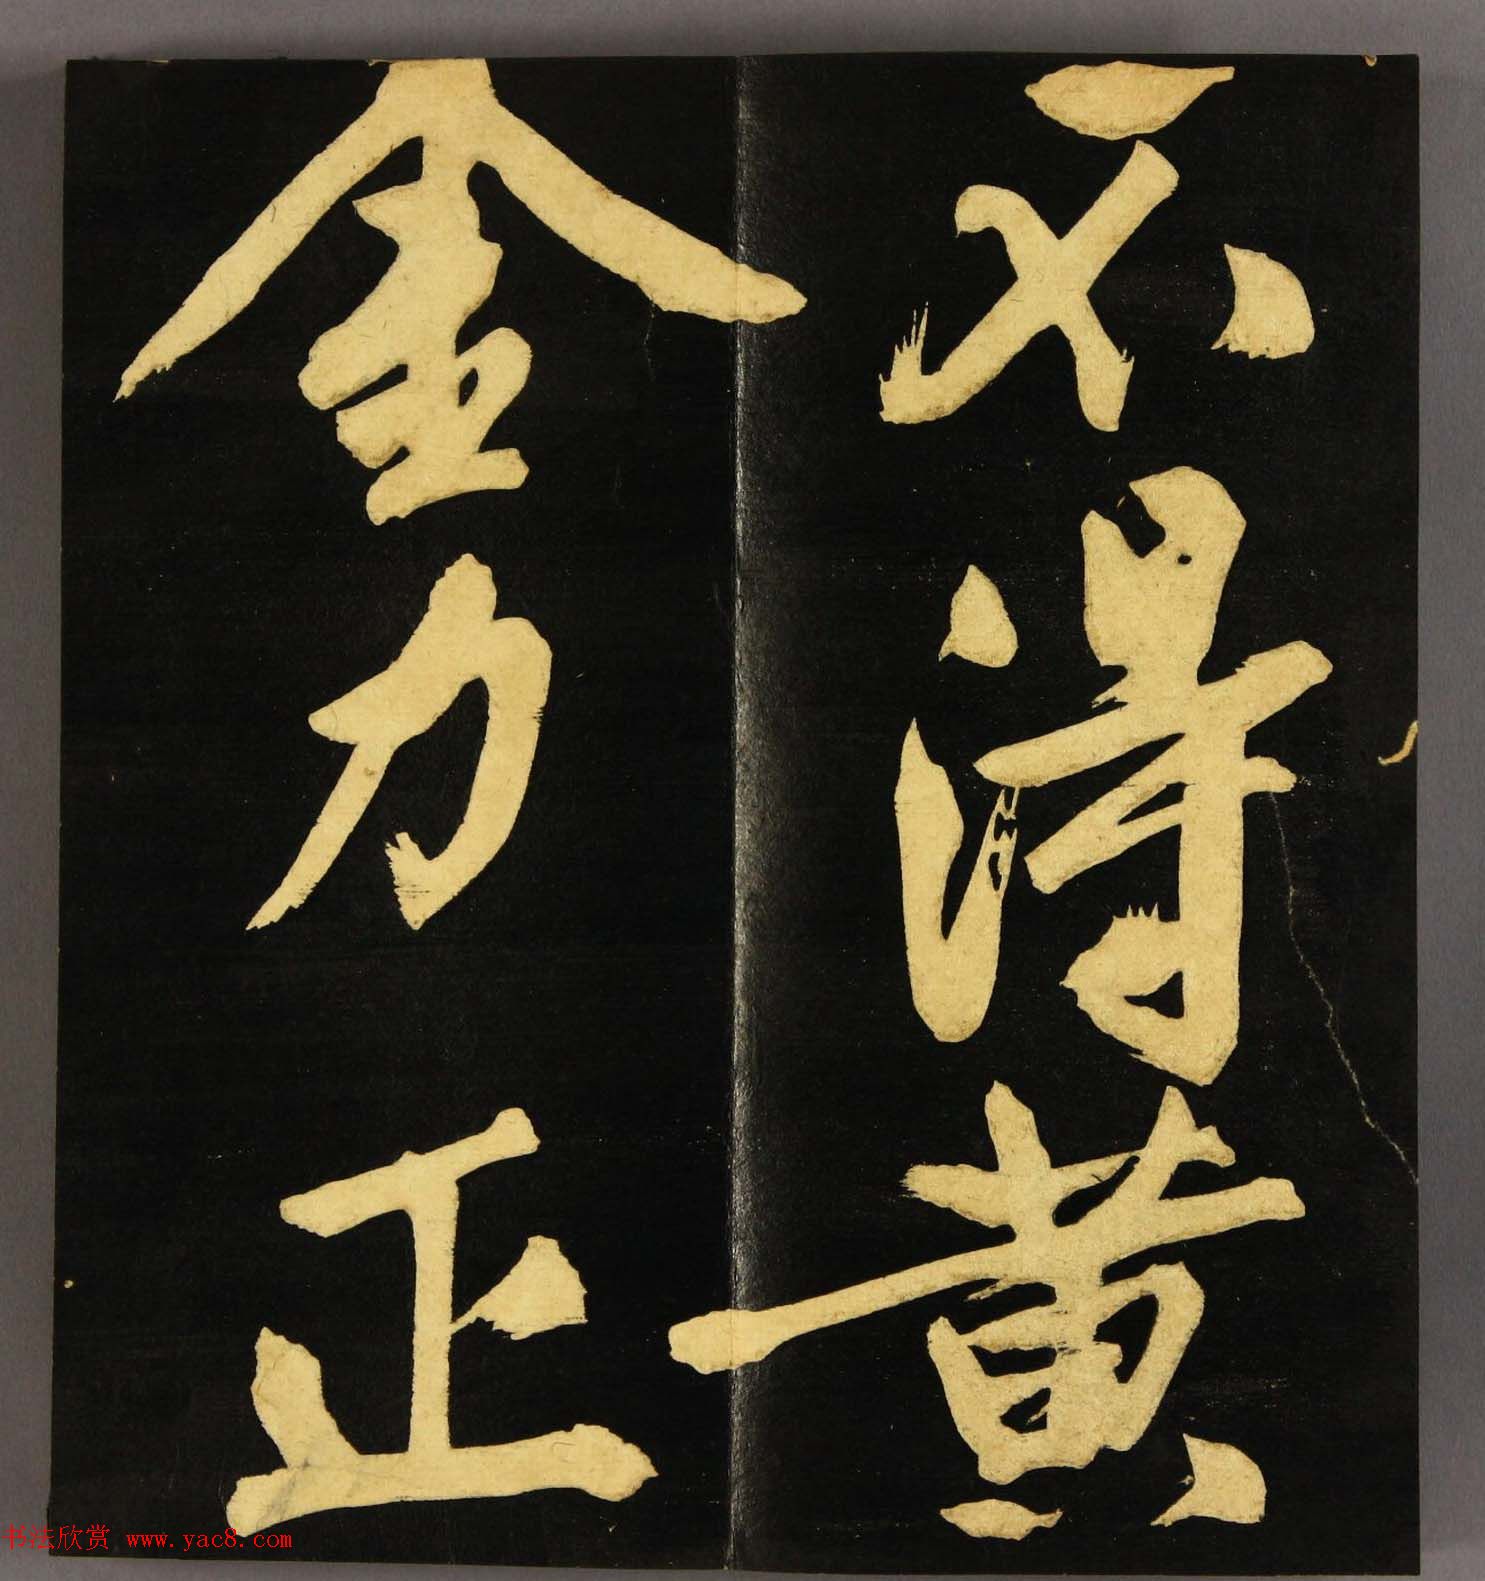 不得黄
金力正
书法欣赏 www.yac8.com